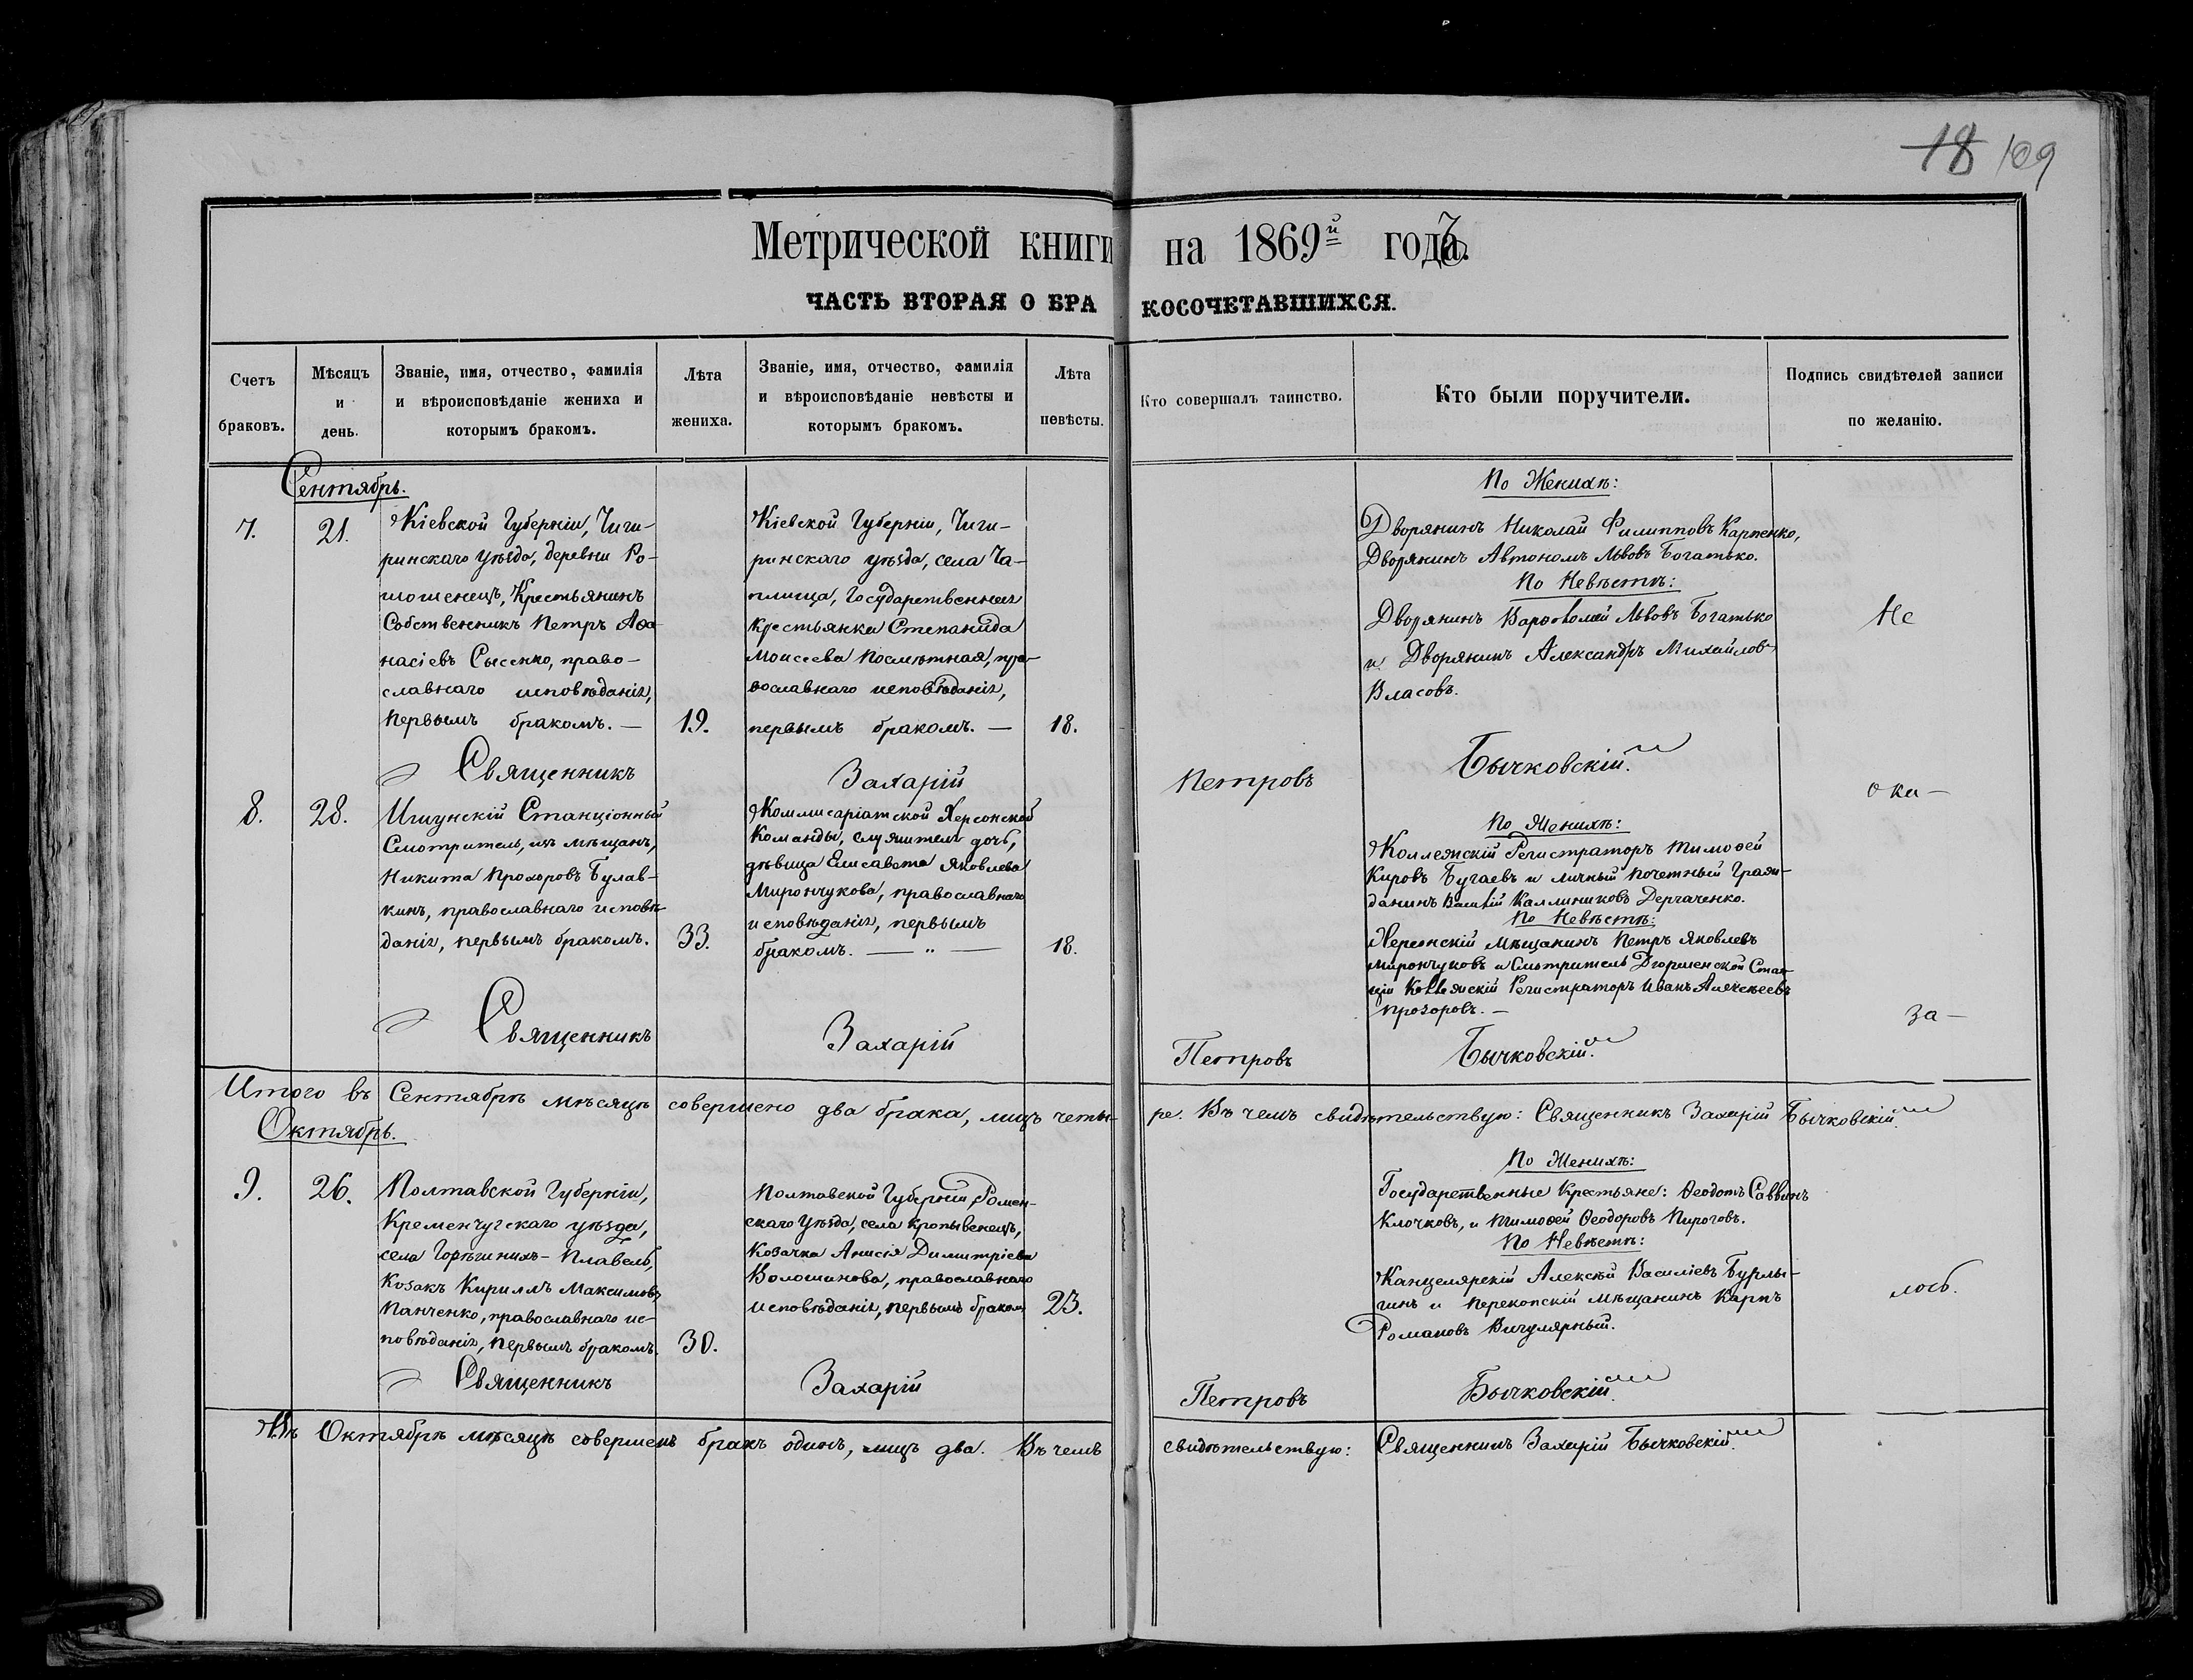 18 109
Метрической книги на 1869й годъ.
ЧАСТЬ ВТОРАЯ О БРАКОСОЧЕТАВШИХСЯ.
Счетъ браковъ.
Мѣсяцъ и день.
Званіе, имя, отчество, фамилія
и вѣроисповѣданіе жениха и
которымъ бракомъ.
Лѣта жениха.
Званіе, имя, отчество, фамилія
и вѣроисповѣданіе невѣсты и
которымъ бракомъ.
Лѣта невѣсты.
Кто совершалъ таинство.
Кто были поручители.
Подпись свидѣтелей записи
по желанію.
Сентябрь.
7. 21.
Кіевской Губерніи, Чиги-
ринскаго уѣзда, деревни Ро-
шошенецъ, Крестьянинъ
Собственникъ Петръ Аѳа-
насіевъ Сысенко, право-
славнаго исповѣданія,
первымъ бракомъ. —
19.
Кіевской Губерніи, Чиги-
ринскаго уѣзда, села Ча-
плища, Государственная
крестьянка Степанида
Моисеева Посмѣтная, пра-
вославнаго исповѣданія,
первымъ бракомъ. —
18.
По Женихѣ:
Дворянинъ Николай Филипповъ Карпенко,
Дворянинъ Автономъ Львовъ Богатько.
По Невѣстѣ:
Дворянинъ Варѳоломей Львовъ Богатько
и Дворянинъ Александръ Михайловъ
Власовъ.
Не
Священникъ Захарій Петровъ Бычковскій.
ока-
8. 28.
Станціонный
Смотритель, изъ мѣщанъ,
Никита Прохоровъ Булав-
кинъ, православнаго исповѣ-
данія, первымъ бракомъ.
33.
Коммисаріатской Херсонской
Команды, служителя дочь,
дѣвица Елисавета Яковлева
Мирончукова, православнаго
исповѣданія, первымъ
бракомъ. — „ —
18.
По Женихѣ:
Коллежскій Регистраторъ Тимоѳей
Кировъ Бугаевъ и личный почетный Граж-
данинъ Василій Каллиниковъ Дергаченко.
По Невѣстѣ:
Херсонскій мѣщанинъ Петръ Яковлевъ
Мирончуковъ и Смотритель Стан-
ціи Коллежскій Регистраторъ Иванъ Алексѣевъ
Прозоровъ. —
за-
Священникъ Захарій Петровъ Бычковскій.
Итого въ Сентябрѣ мѣсяцѣ совершено два брака, лицъ четы-ре. Въ чемъ свидѣтельствую: Священникъ Захарій Бычковскій.
Октябрь.
9. 26.
Полтавской Губерніи,
Кременчугскаго уѣзда,
села Плавель,
Козакъ Кириллъ Максимовъ
Панченко, православнаго ис-
повѣданія, первымъ бракомъ.
30.
Полтавской Губерніи, Ромен-
скаго уѣзда, села
Козачка Анисія Димитріева
Волошинова, православнаго
исповѣданія, первымъ бракомъ
23.
По Женихѣ:
Государственные крестьяне: Ѳеодотъ Саввинъ
Клочковъ, и Тимоѳей Ѳеодоровъ Пироговъ.
По Невѣстѣ:
Канцелярскій Алексѣй Василіевъ Бурлы-
гинъ и Перекопскій мѣщанинъ Карпъ
Романовъ Вигулярный.
лось.
Священникъ Захарій Петровъ Бычковскій.
Въ Октябрѣ мѣсяцѣ совершенъ бракъ одинъ, лицъ два. Въ чемъ свидѣтельствую: Священникъ Захарій Бычковскій.